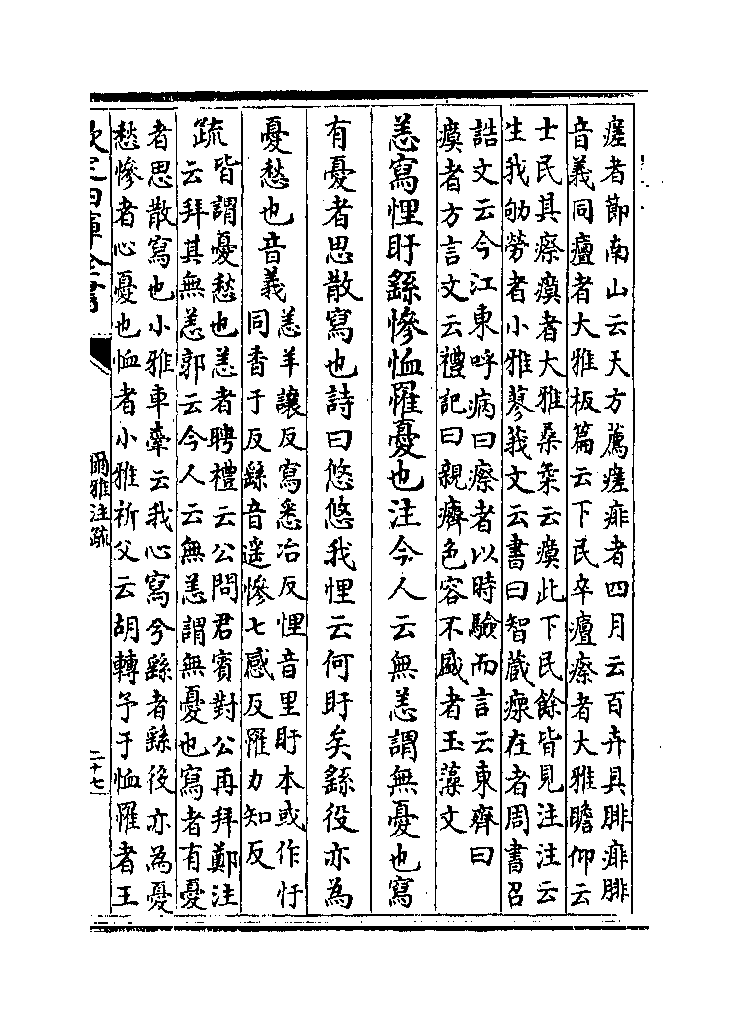 瘥者節南山云天方薦瘥痱者四月云百卉具腓痱腓
音義同癉者大雅板篇云下民卒癉瘵者大雅瞻仰云
士民其瘵瘼者大雅桑柔云瘼此下民餘皆見注注云
生我劬勞者小雅蓼莪文云書曰智藏瘝在者周書召
誥文云今江東呼病曰瘵者以時驗而言云東齊曰
瘼者方言文云禮記曰親癠色容不盛者玉藻文
恙寫悝盱繇慘恤罹憂也注今人云無恙謂無憂也寫
有憂者思散寫也詩曰悠悠我悝云何盱矣繇役亦為
憂愁也音義
恙羊讓反寫悉冶反悝音里盱本或作忬
同香于反繇音遥慘七感反罹力知反
疏
皆謂憂愁也恙者聘禮云公問君賓對公再拜鄭注
云拜其無恙郭云今人云無恙謂無憂也寫者有憂
者思散寫也小雅車舝云我心寫兮繇者繇役亦為憂
愁慘者心憂也恤者小雅祈父云胡轉予于恤罹者王
欽定四庫全書
爾雅注疏
二十七